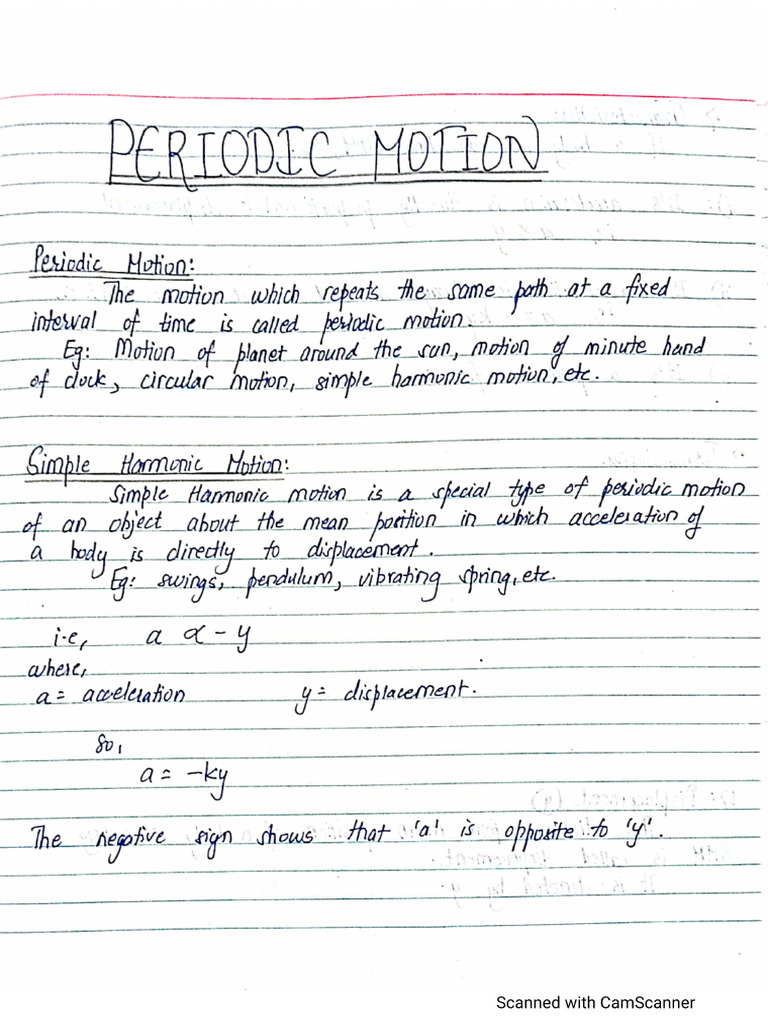 PERIODIC MOTION
Periodic Motion:
The motion which repeats the same path at a fixed
interval of time is called periodic motion.
Eg: Motion of planet around the sun, motion of minute hand
of clock, circular motion, simple harmonic motion, etc.
Simple Harmonic Motion:
Simple Harmonic motion is a special type of periodic motion
of an object about the mean position in which acceleration of
a body is directly to displacement.
Eg: swings, pendulum, vibrating spring, etc.
i.e, a ∝ - y
where,
a = acceleration y = displacement.
so,
a = -ky
The negative sign shows that 'a' is opposite to 'y'.
Scanned with CamScanner